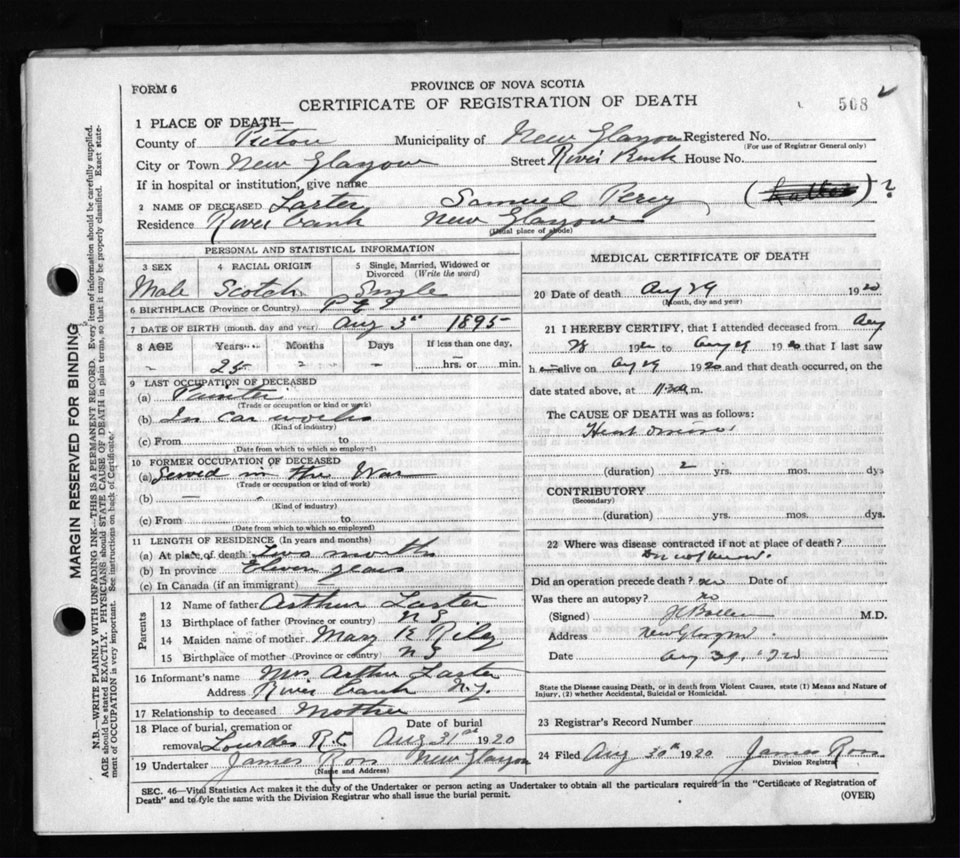 FORM 6
PROVINCE OF NOVA SCOTIA
CERTIFICATE OF REGISTRATION OF DEATH
508
1 PLACE OF DEATH—
County of Pictou Municipality of New Glasgow Registered No.
(For use of Registrar General only)
City or Town New Glasgow Street River Bank House No.
If in hospital or institution, give name
2 NAME OF DECEASED Laster Samuel Percy ( ) ?
Residence River bank New Glasgow
(Usual place of abode)
PERSONAL AND STATISTICAL INFORMATION
3 SEX 4 RACIAL ORIGIN 5 Single, Married, Widowed or Divorced (Write the word)
Male Scotch Single
6 BIRTHPLACE (Province or Country) P E I
7 DATE OF BIRTH (month, day and year) Aug 3rd 1895
8 AGE Years Months Days If less than one day,
25 hrs. or min.
9 LAST OCCUPATION OF DECEASED
(a) Painter
(Trade or occupation or kind or work)
(b) In car works
(Kind of industry)
(c) From to
(Date from which to which so employed)
10 FORMER OCCUPATION OF DECEASED
(a) Served in the War
(Trade or occupation or kind of work)
(b) —
(Kind of industry)
(c) From to
(Date from which to which so employed)
11 LENGTH OF RESIDENCE (In years and months)
(a) At place of death Two months
(b) In province Eleven years
(c) In Canada (if an immigrant)
Parents
12 Name of father Arthur Laster
13 Birthplace of father (Province or country) N S
14 Maiden name of mother Mary E Riley
15 Birthplace of mother (Province or country) N S
16 Informant's name Mrs Arthur Laster
Address River bank N.G.
17 Relationship to deceased Mother
18 Place of burial, cremation or removal Lourdes R.C Date of burial Aug 31st 1920
19 Undertaker James Ross New Glasgow
(Name and Address)
MEDICAL CERTIFICATE OF DEATH
20 Date of death Aug 29 1920
(Month, day and year)
21 I HEREBY CERTIFY, that I attended deceased from Aug
28 1920 to Aug 29 1920 that I last saw
h alive on Aug 29 1920 and that death occurred, on the
date stated above, at 11.30 m.
The CAUSE OF DEATH was as follows:
Heart disease
(duration) 2 yrs. mos. dys
CONTRIBUTORY
(Secondary)
(duration) yrs. mos. dys.
22 Where was disease contracted if not at place of death?
Do not know.
Did an operation precede death? no Date of
Was there an autopsy? no
(Signed) M.D.
Address New Glasgow
Date Aug 1920
State the Disease causing Death, or in death from Violent Causes, state (1) Means and Nature of Injury, (2) whether Accidental, Suicidal or Homicidal.
23 Registrar's Record Number
24 Filed Aug 30th 1920 James Ross
Division Registrar
SEC. 46—Vital Statistics Act makes it the duty of the Undertaker or person acting as Undertaker to obtain all the particulars required in the "Certificate of Registration of
Death" and to fyle the same with the Division Registrar who shall issue the burial permit. (OVER)
MARGIN RESERVED FOR BINDING
N.B.—WRITE PLAINLY WITH UNFADING INK—THIS IS A PERMANENT RECORD. Every item of information should be carefully supplied.
AGE should be stated EXACTLY. PHYSICIANS should STATE CAUSE OF DEATH in plain terms, so that it may be properly classified. Exact statement of OCCUPATION is very important. See instructions on back of Certificate.